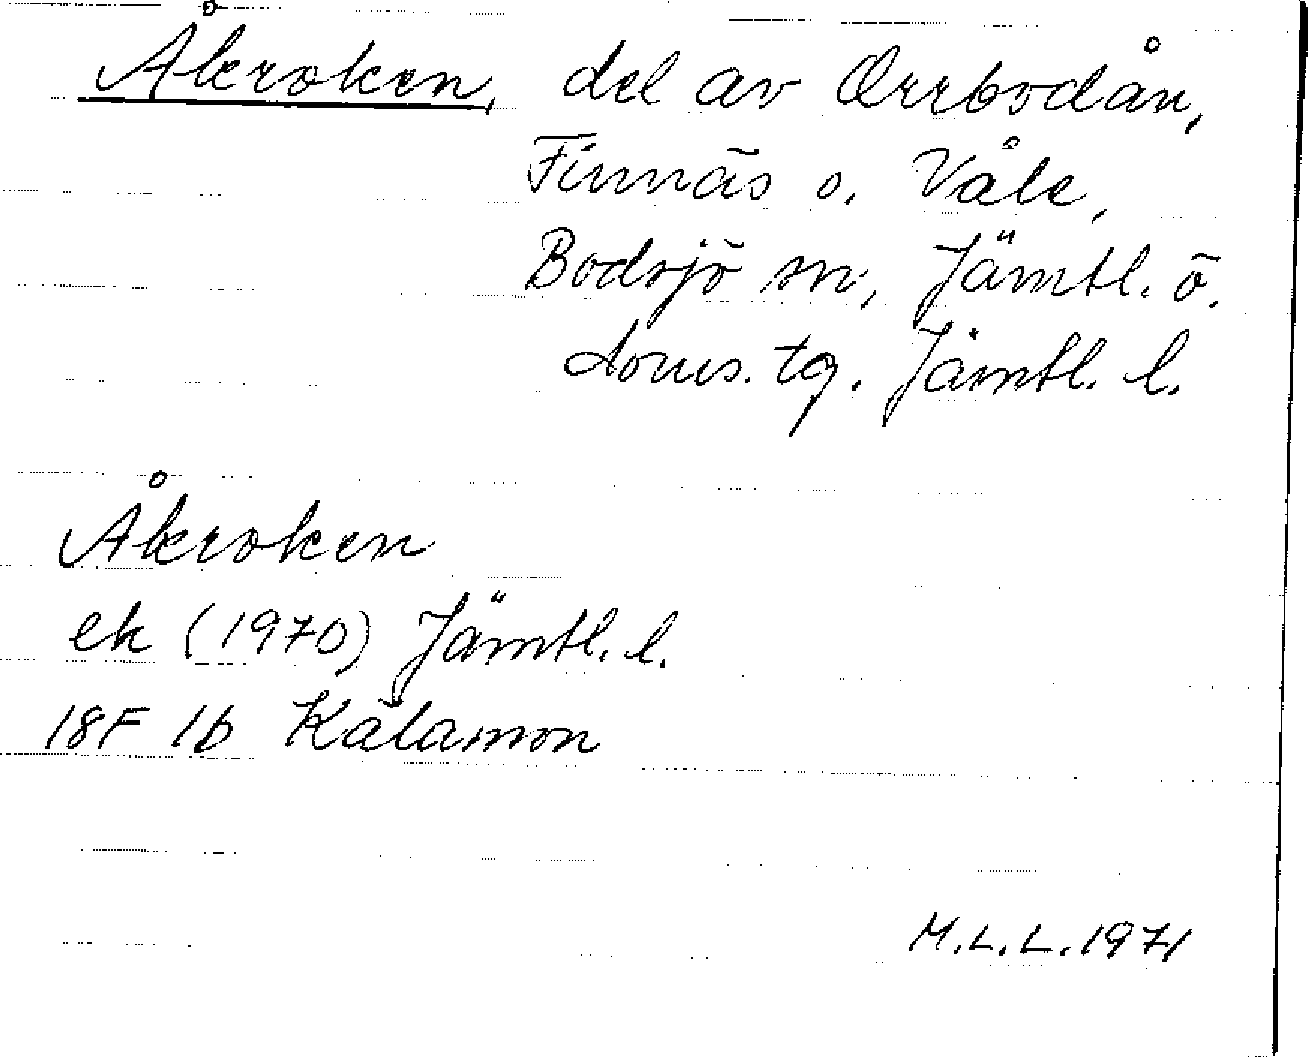 Åkroken, del av Orrbodån,
Finnäs o. Våle,
Bodsjö sn, Jämtl. ö.
doms. tg. Jämtl. l.
Åkroken
ek (1970) Jämtl. l.
18F 1b Kälamon
M.L.L. 1971